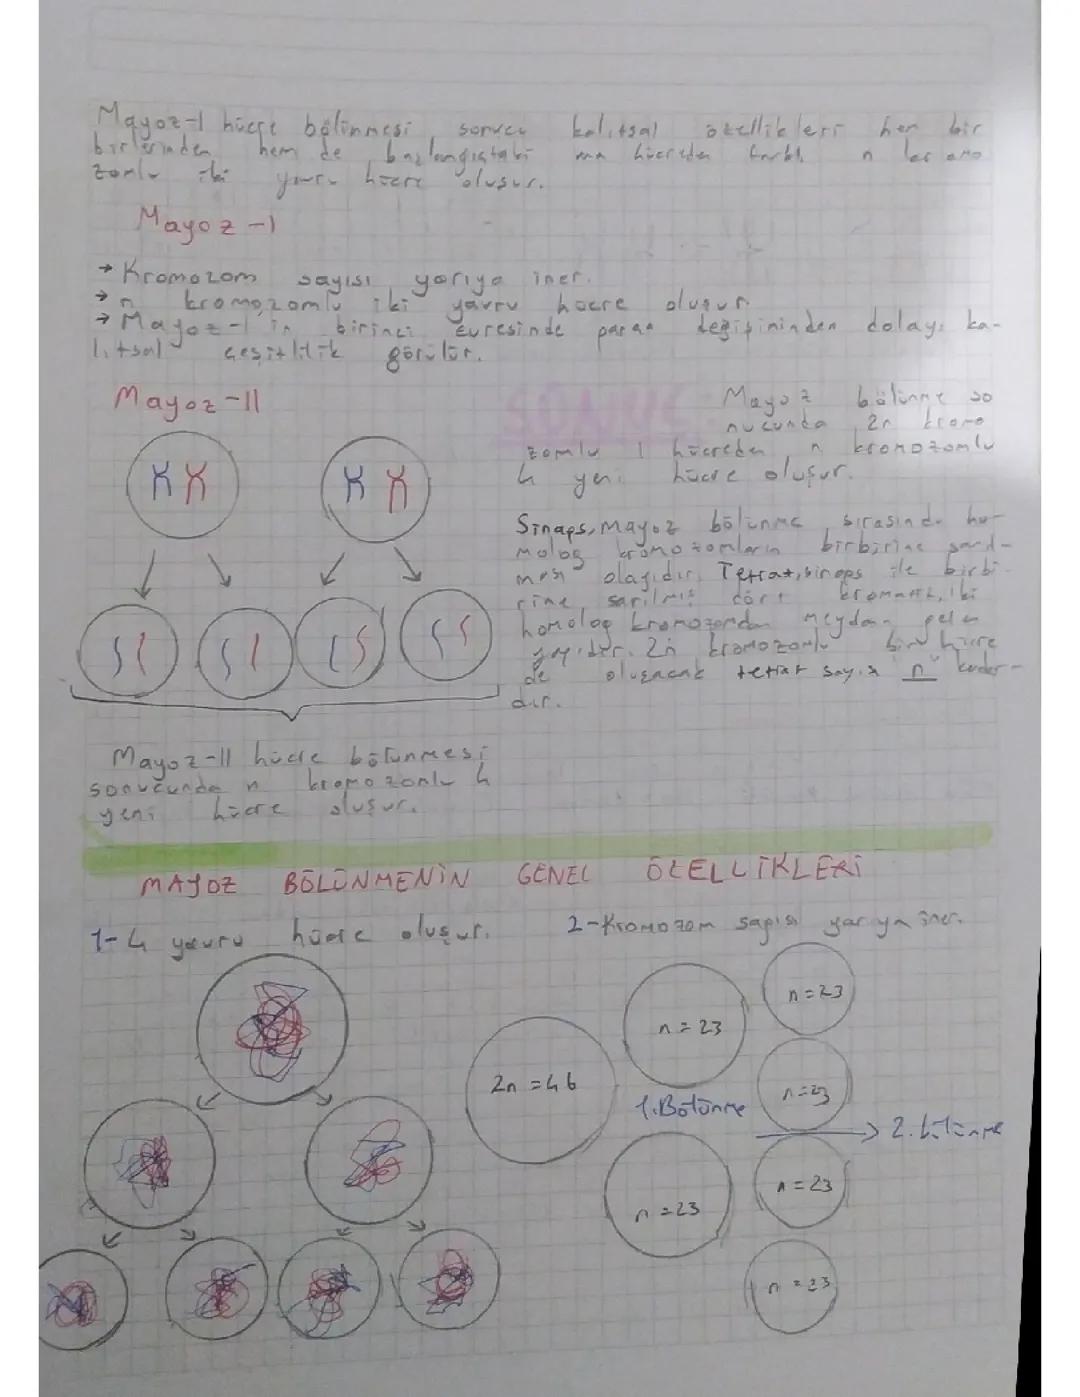 Mayoz-I hücre bölünmesi sonucu kalıtsal özellikleri hem bir
birlerinden hem de başlangıçtaki ana hücreden farklı n kromo
zomlu iki yavru hücre oluşur.
Mayoz-I
→ Kromozom sayısı yarıya iner.
→ n kromozomlu iki yavru hücre oluşur.
→ Mayoz-I in birinci evresinde parça değişiminden dolayı ka-
lıtsal çeşitlilik görülür.
Mayoz-II
SONUÇ: Mayoz bölünme so
nucunda 2n kromo
zomlu 1 hücreden n kromozomlu
4 yeni hücre oluşur.
Sinaps, Mayoz bölünme sırasında ho-
molog kromozomların birbirine sarıl-
ması olayıdır. Tetrat, sinaps ile birbi-
rine sarılmış dört kromatit, iki
homolog kromozomdan meydana gelen
yapıdır. 2n kromozomlu bir hücre
de oluşacak tetrat sayısı "n" kadar-
dır.
Mayoz-II hücre bölünmesi
sonucunda n kromozomlu 4
yeni hücre oluşur.
MAYOZ BÖLÜNMENİN GENEL ÖZELLİKLERİ
1- 4 yavru hücre oluşur.
2- Kromozom sayısı yarıya iner.
2n = 46
n = 23
n = 23
1. Bölünme
n = 23
n = 23
2. bölünme
n = 23
n = 23